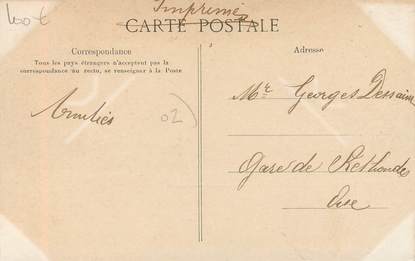 100€
Imprimé
CARTE POSTALE
Correspondance
Tous les pays étrangers n'acceptent pas la
correspondance au recto, se renseigner à la Poste
Amitiés
02
Adresse
Mr Georges Dessaint
Gare de Rethondes
Oise